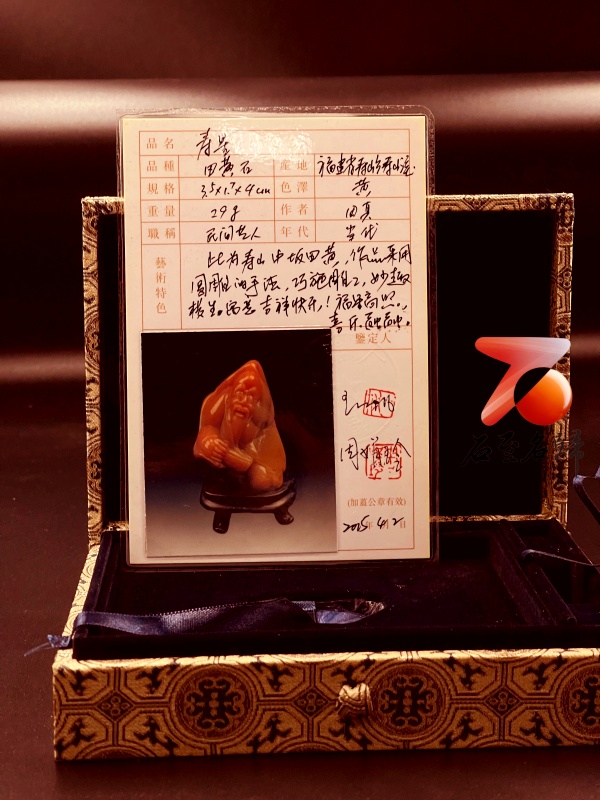 品名 寿星
品種 田黄石 產地 福建省寿山乡寿山
規格 3.5×1.7×4cm 色澤 黄
重量 29g 作者 田真
職稱 民间艺人 年代 当代
藝術特色
此为寿山中坂田黄,作品采用
圆雕手法,巧施雕工,妙趣
横生。寓意吉祥快乐!福星高照。
喜乐
鑒定人
(加蓋公章有效)
2015年4月2日